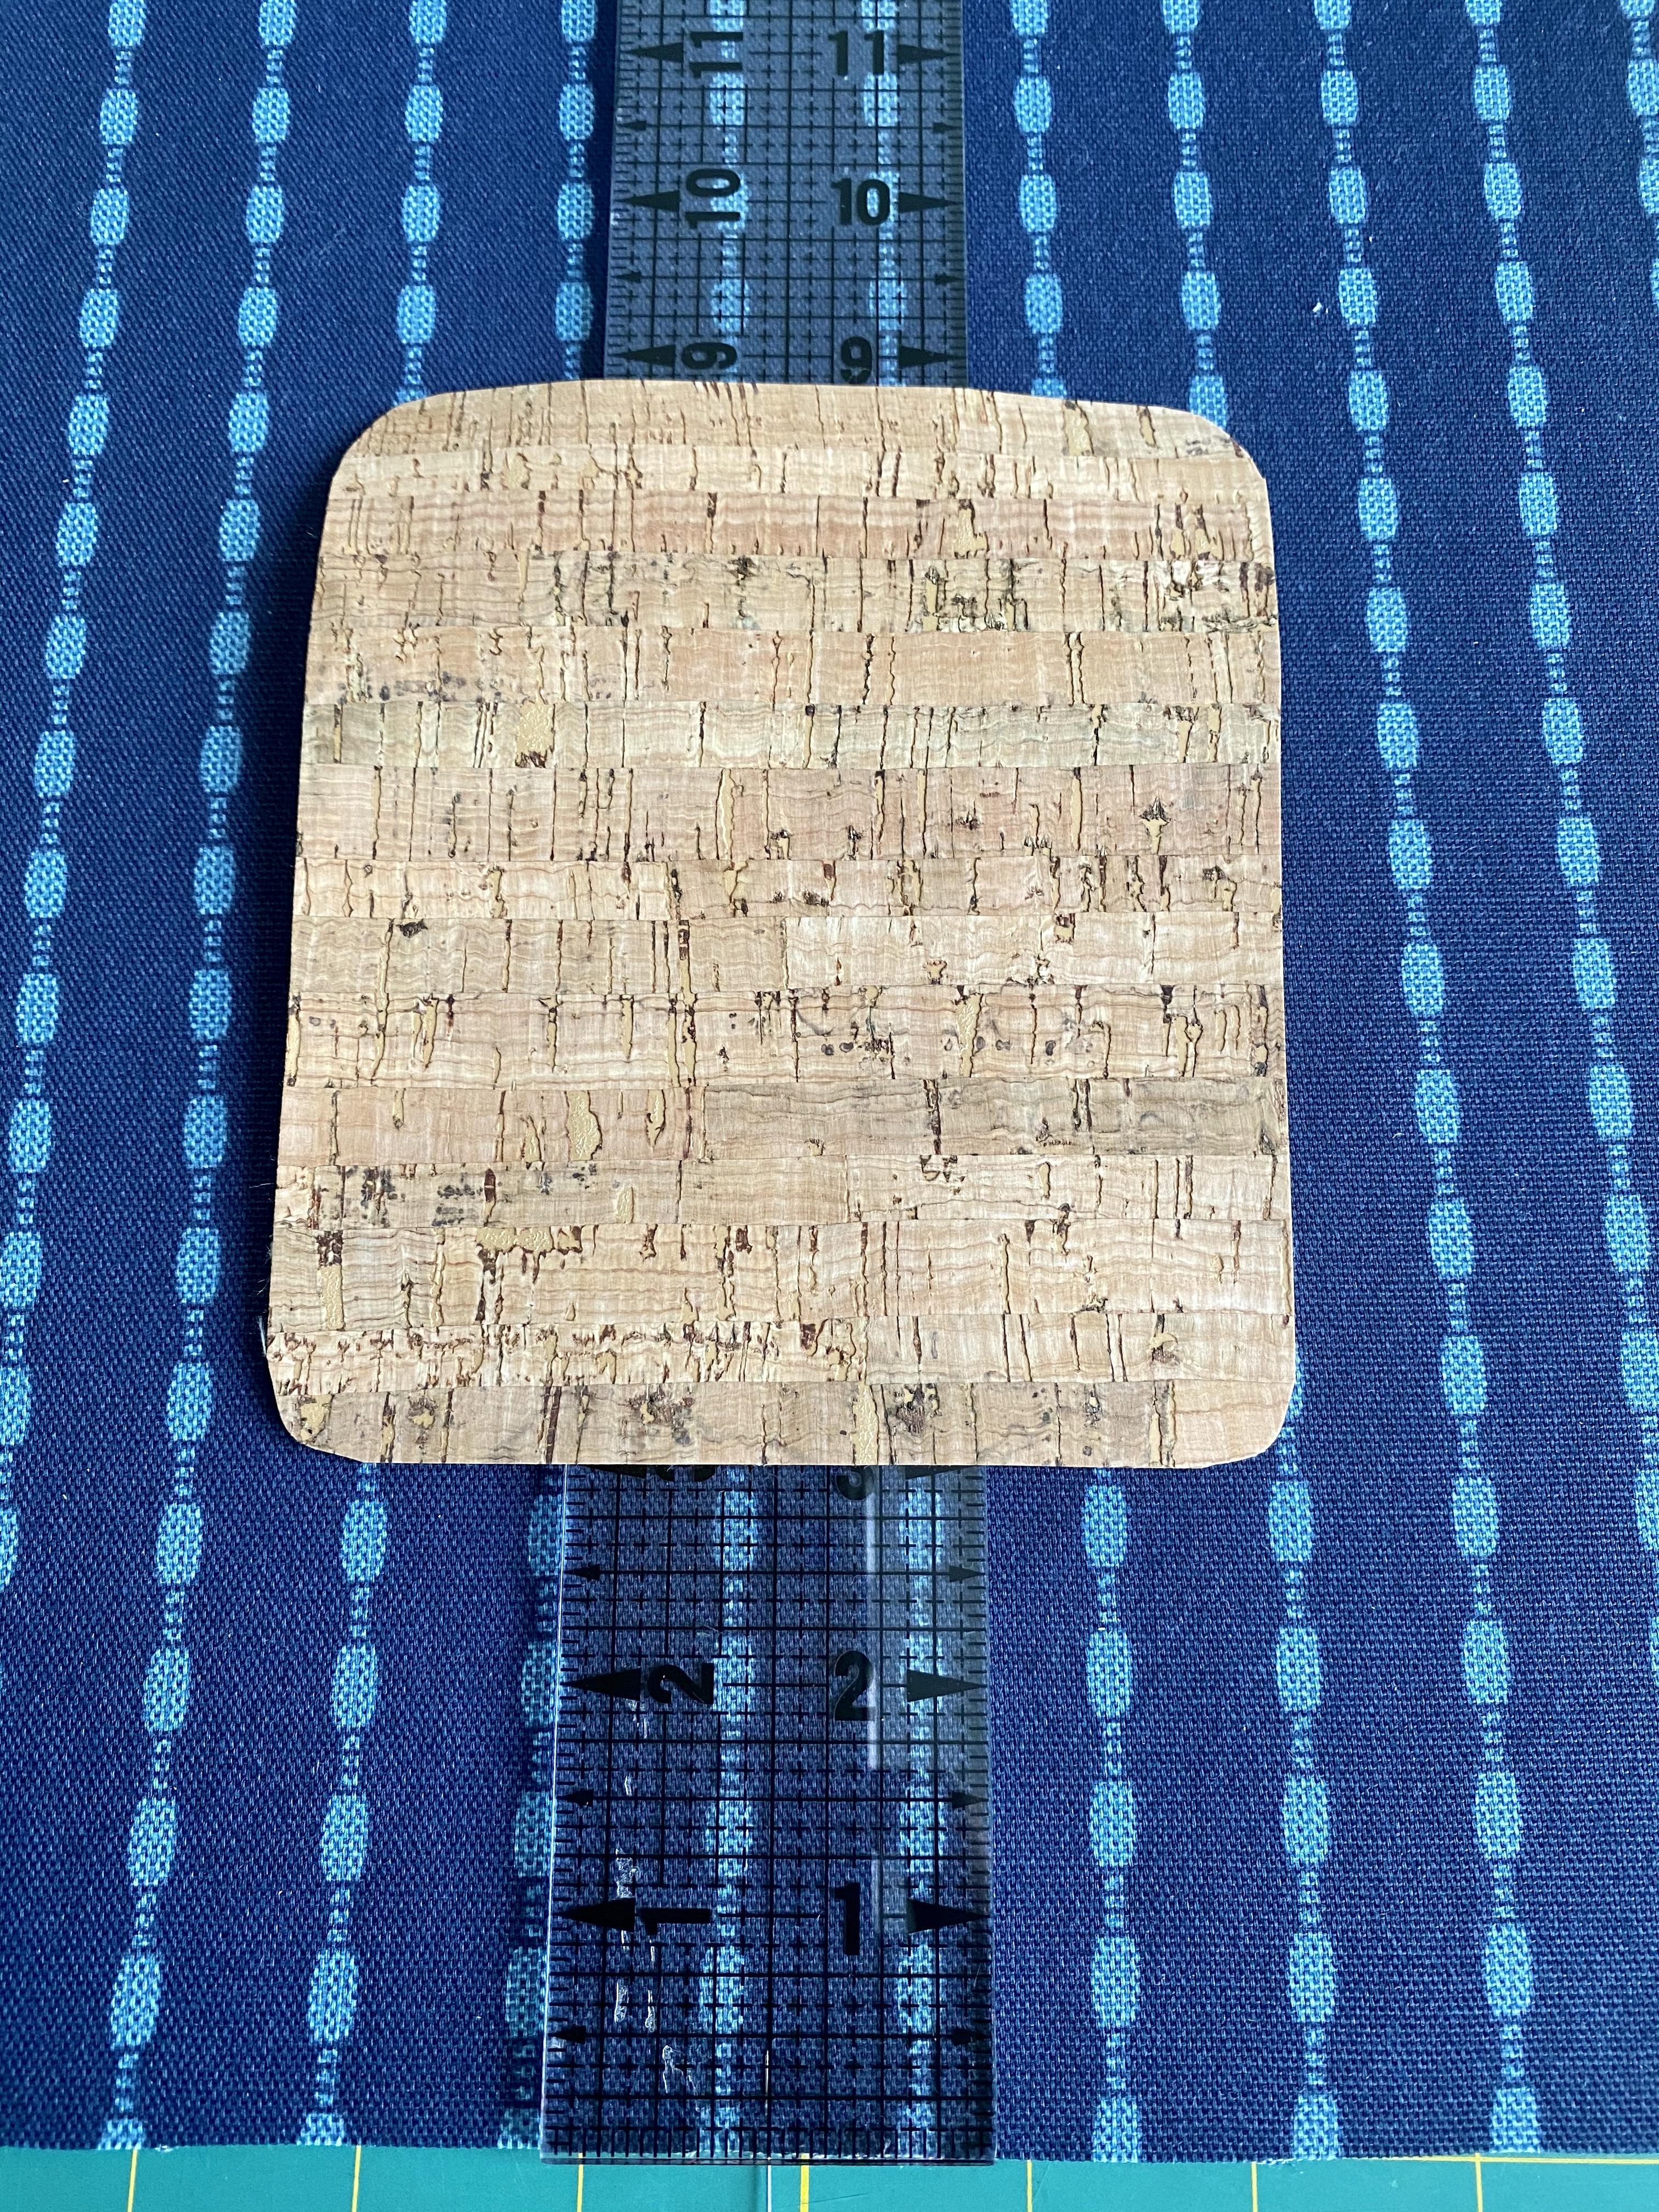 11 11
10 10
9 9
3 3
2 2
1 1